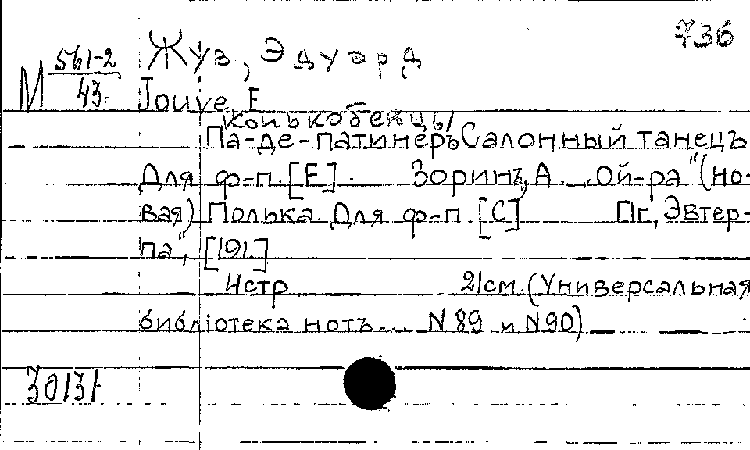 736
М 561-2
43
Жув, Эдуард
Jouve, E
Конькобежцы
Па-де-патинеръ Салонный танецъ
для ф-п. [F]. Зоринъ, А. „Ой-ра" (но-
вая) Полька для ф-п. [C] Пг, „Эвтер-
па", [191.]
4 стр 21 см. (Универсальная
библіотека нотъ... N 89 и N 90)
30131